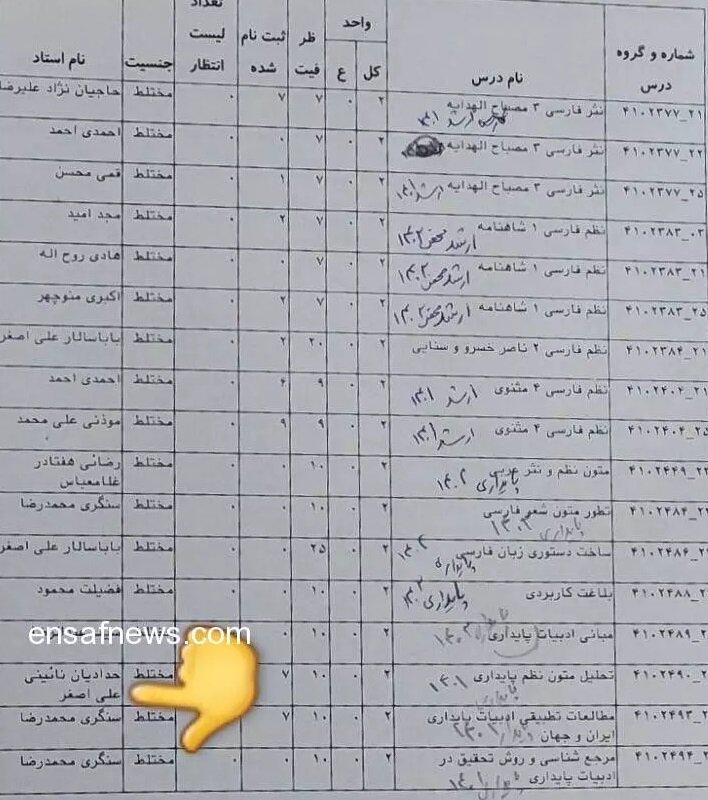 شماره و گروه درس
نام درس
واحد
کل
ع
ظر فیت
ثبت نام شده
تعداد لیست انتظار
جنسیت
نام استاد
۲۱_۴۱۰۲۳۷۷ نثر فارسی ۳ مصباح الهدایه ارشد ۱۴۰۱ ۲ ۰ ۷ ۷ ۰ مختلط حاجیان نژاد علیرضا
۲۲_۴۱۰۲۳۷۷ نثر فارسی ۳ مصباح الهدایه ۲ ۰ ۷ ۰ ۰ مختلط احمدی احمد
۲۵_۴۱۰۲۳۷۷ نثر فارسی ۳ مصباح الهدایه ارشد ۱۴۰۱ ۲ ۰ ۷ ۱ ۰ مختلط قمی محسن
۰۳_۴۱۰۲۳۸۳ نظم فارسی ۱ شاهنامه ارشد محض ۱۴۰۲ ۲ ۰ ۷ ۲ ۰ مختلط مجد امید
۲۱_۴۱۰۲۳۸۳ نظم فارسی ۱ شاهنامه ارشد محض ۱۴۰۲ ۲ ۰ ۷ ۰ ۰ مختلط هادی روح اله
۲۵_۴۱۰۲۳۸۳ نظم فارسی ۱ شاهنامه ارشد محض ۱۴۰۲ ۲ ۰ ۷ ۲ ۰ مختلط اکبری منوچهر
۲۱_۴۱۰۲۳۸۴ نظم فارسی ۲ ناصر خسرو و سنایی ۲ ۰ ۲۰ ۲ ۰ مختلط باباسالار علی اصغر
۲۱_۴۱۰۲۴۰۴ نظم فارسی ۴ مثنوی ارشد ۱۴۰۱ ۲ ۰ ۹ ۴ ۰ مختلط احمدی احمد
۲۵_۴۱۰۲۴۰۴ نظم فارسی ۴ مثنوی ارشد ۱۴۰۱ ۲ ۰ ۹ ۹ ۰ مختلط موذنی علی محمد
۴۱۰۲۴۴۹ متون نظم و نثر عربی پایداری ۱۴۰۲ ۲ ۰ ۱۰ ۰ ۰ مختلط رضائی هفتادر
غلامعباس
۴۱۰۲۴۸۴ تطور متون شعر فارسی پایداری ۱۴۰۳ ۲ ۰ ۱۰ ۰ ۰ مختلط سنگری محمدرضا
۴۱۰۲۴۸۶ ساخت دستوری زبان فارسی پایداری ۱۴۰۲ ۲ ۰ ۲۵ ۰ ۰ مختلط باباسالار علی اصغر
۴۱۰۲۴۸۸ بلاغت کاربردی پایداری ۱۴۰۲ ۲ ۰ ۱۰ ۰ ۰ مختلط فضیلت محمود
۴۱۰۲۴۸۹ مبانی ادبیات پایداری ۲ ۰ ۱۰ ۰
ensafnews.com
۴۱۰۲۴۹۰ تحلیل متون نظم پایداری ۱۴۰۱ پایداری ۲ ۰ ۱۰ ۷ مختلط حدادیان نائینی
علی اصغر
۴۱۰۲۴۹۳ مطالعات تطبیقی ادبیات پایداری ۲ ۰ ۱۰ ۷ مختلط سنگری محمدرضا
ایران و جهان
۴۱۰۲۴۹۴ مرجع شناسی و روش تحقیق در ۲ ۰ ۱۰ ۰ ۰ مختلط سنگری محمدرضا
ادبیات پایداری